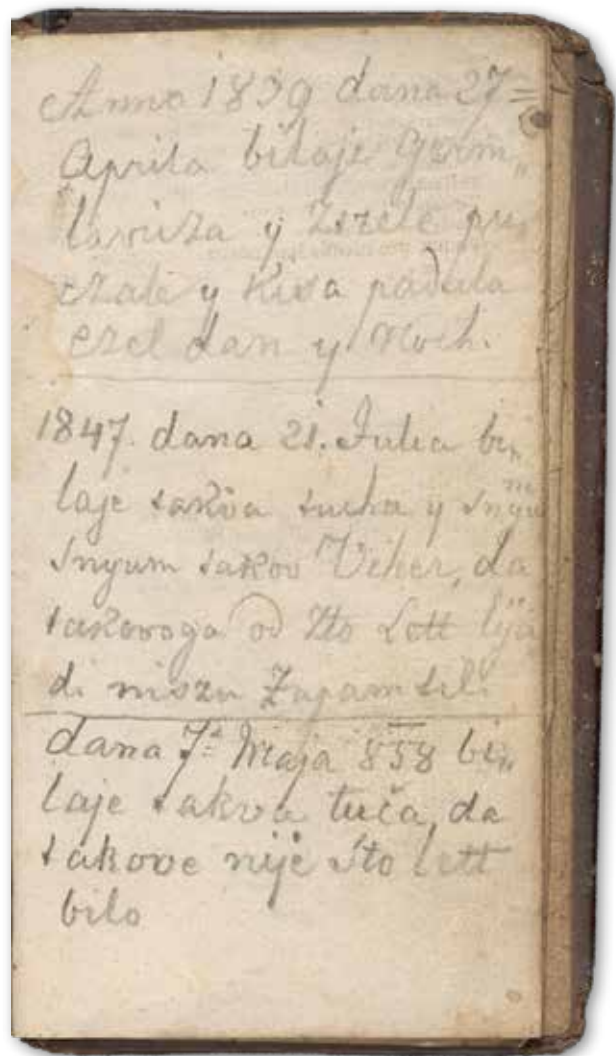 Anno 1839 dana 27=
Aprila bilaje Germ„
lavicza y Ztrele pu„
czale y Kisa padala
czel dan y Noch.
1847. dana 21. Julia bi„
laje takva sucha y
snyum takov Viher, da
takovoga od Zto Lett lyu
di niszu Zapamtili
dana 7a Maja 858 bi„
laje takva tuča, da
takove nije sto lett
bilo